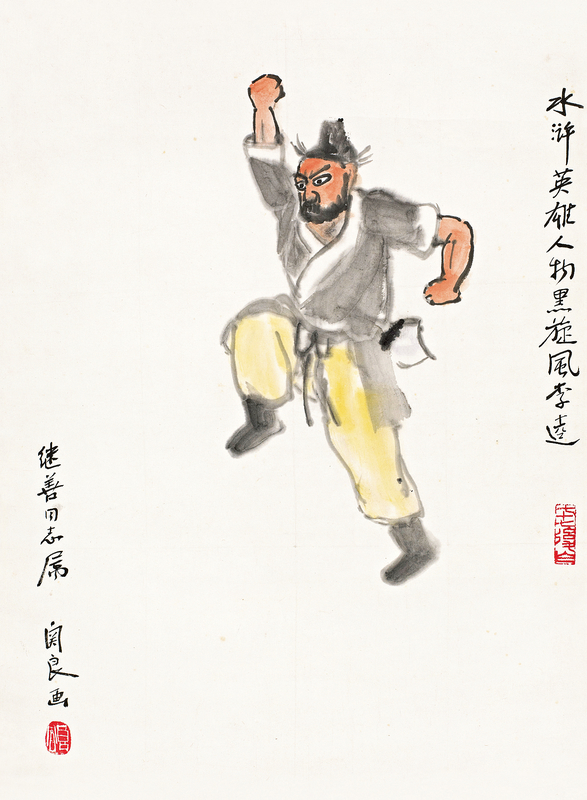 水浒英雄人物黑旋风李逵
继善同志属
关良画